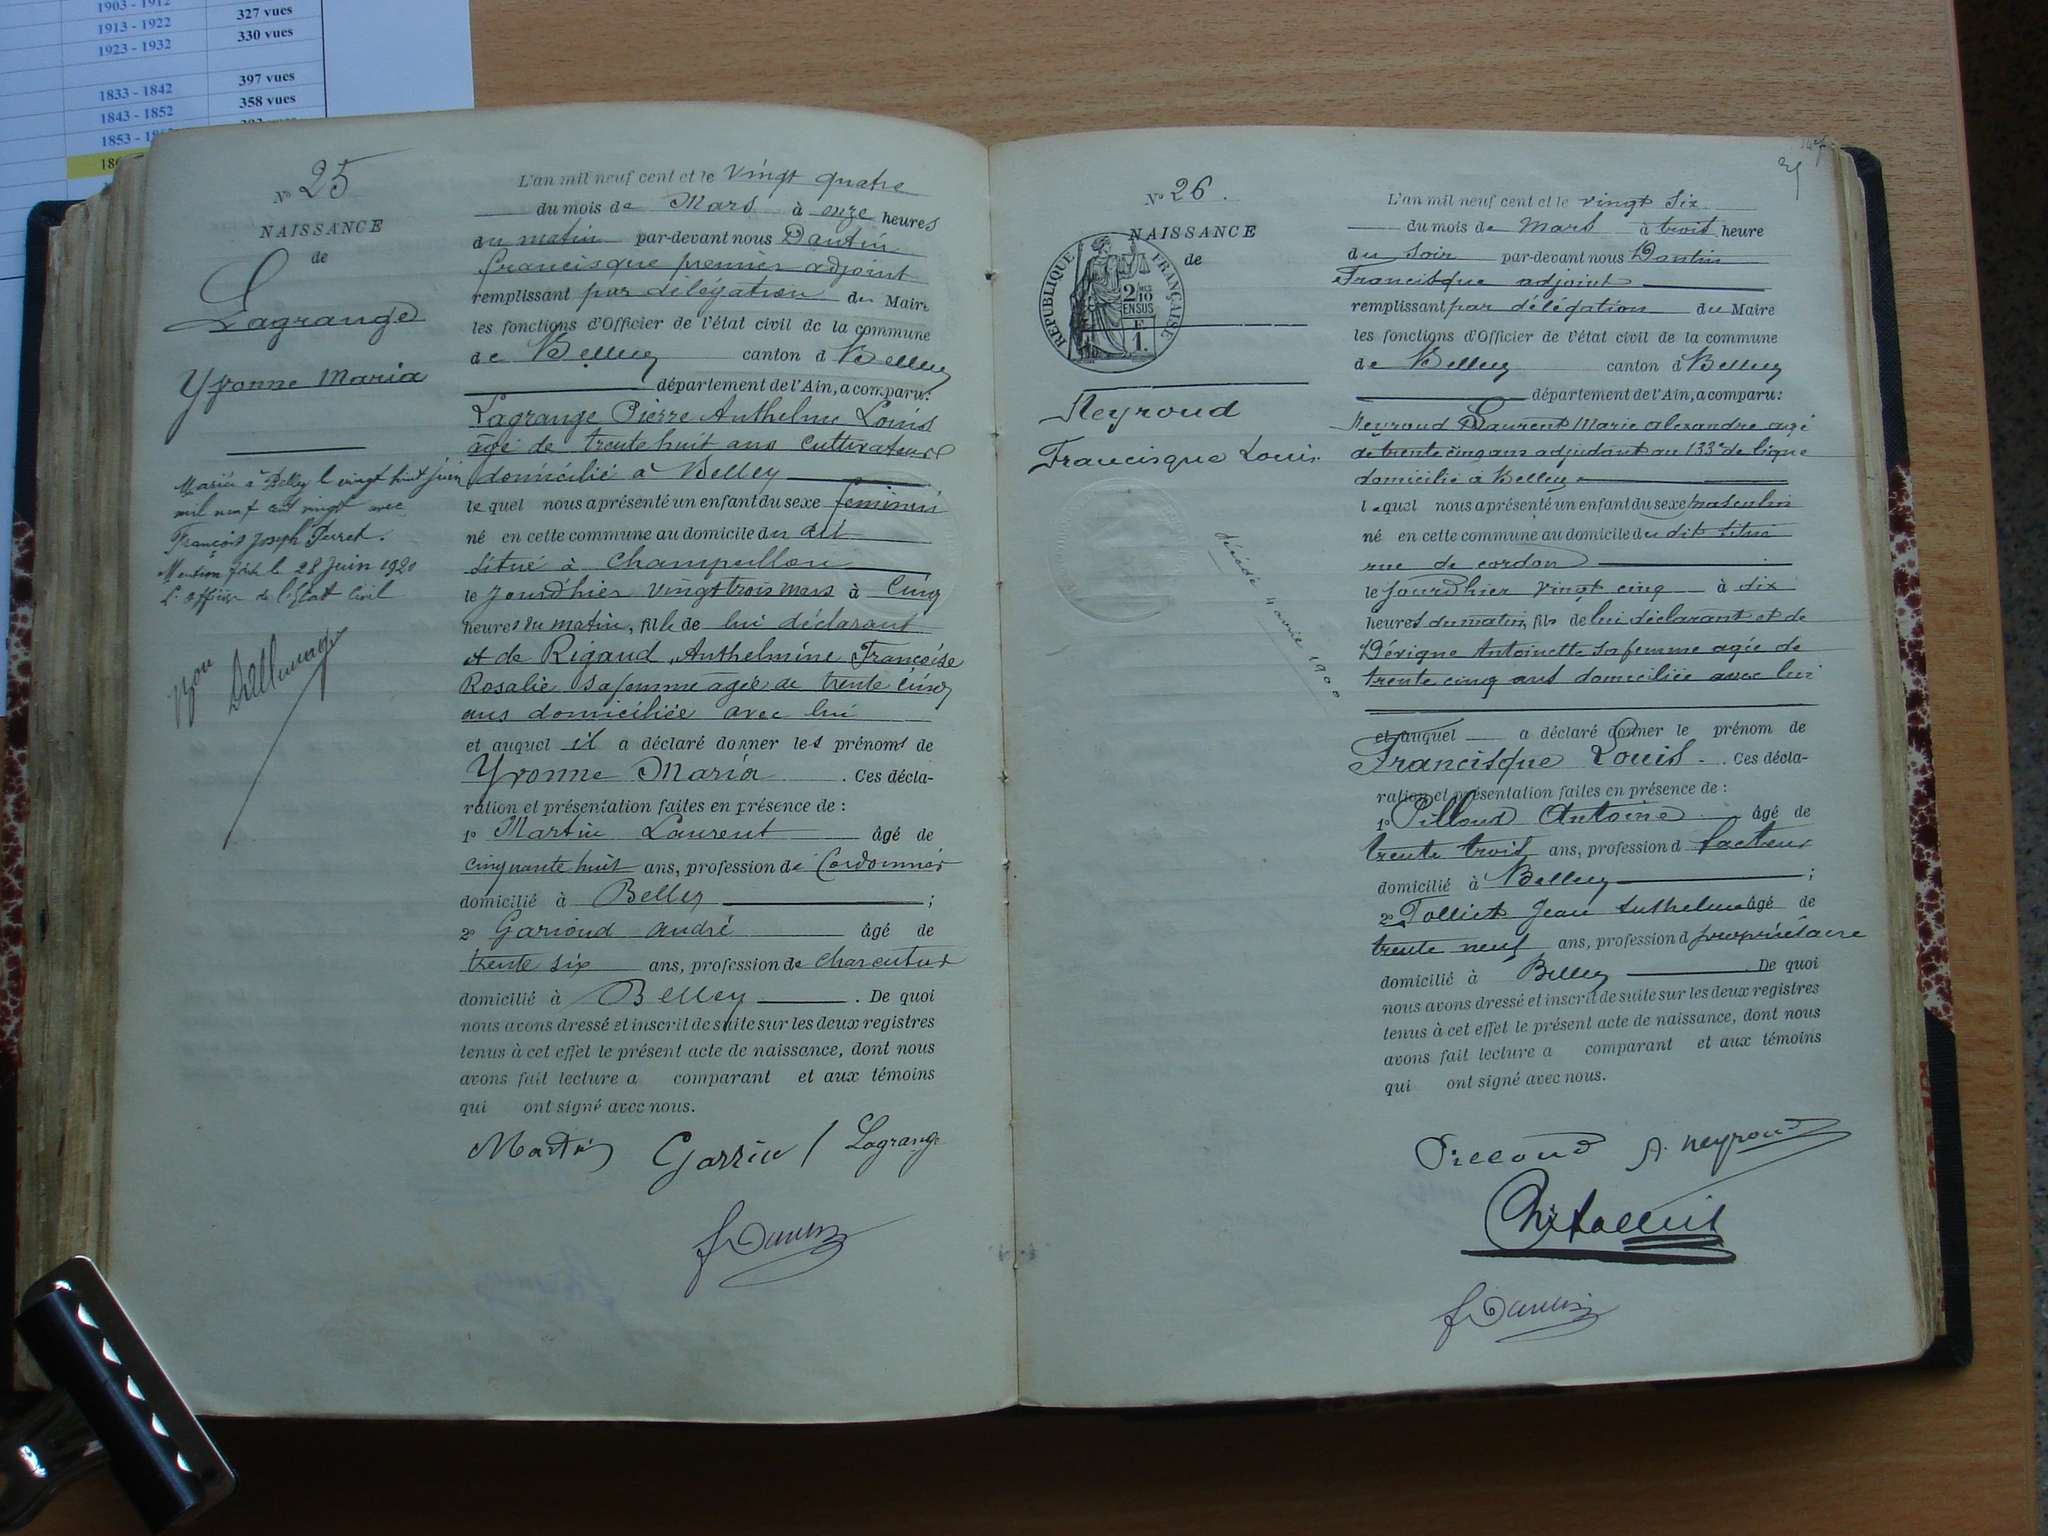 1903 - 1912
1913 - 1922 327 vues
1923 - 1932 330 vues
397 vues
1833 - 1842
358 vues
1843 - 1852
1853 -
N° 25
NAISSANCE
de
Lagrange
Yvonne Maria
Mariée à Belley le vingt huit juin
mil neuf cent vingt avec
François Joseph Perret.
Mention faite le 28 Juin 1920
L'officier de l'Etat Civil
L'an mil neuf cent et le vingt quatre
du mois de Mars à onze heures
du matin par-devant nous Dantin
francisque premier adjoint
remplissant par délégation du Maire
les fonctions d'Officier de l'état civil de la commune
de Belley canton d Belley
département de l'Ain, a comparu:
Lagrange Pierre Anthelme Louis
âgé de trente huit ans cultivateur
domicilié à Belley
lequel nous a présenté un enfant du sexe feminin
né en cette commune au domicile du dit
situé à Champeillon
le jourd'hier vingt trois mars à cinq
heures du matin, fille de lui déclarant
et de Rigaud Anthelmine Françoise
Rosalie sa femme agée de trente cinq
ans domiciliée avec lui
et auquel il a déclaré donner les prénoms de
Yvonne Maria . Ces décla-
ration et présentation faites en présence de :
1° Martin Laurent âgé de
cinquante huit ans, profession de Cordonnier
domicilié à Belley ;
2° Garioud André âgé de
trente six ans, profession de charcutier
domicilié à Belley . De quoi
nous avons dressé et inscrit de suite sur les deux registres
tenus à cet effet le présent acte de naissance, dont nous
avons fait lecture a comparant et aux témoins
qui ont signé avec nous.
Martin Lagrange
f Dantin
N° 26.
NAISSANCE
de
RÉPUBLIQUE FRANÇAISE
2/10
EN SUS
F
1.
Neyroud
Francisque Louis
décédé 4 1900
L'an mil neuf cent et le vingt six
du mois de Mars à trois heure
du soir par-devant nous Dantin
Francisque adjoint
remplissant par délégation du Maire
les fonctions d'Officier de l'état civil de la commune
de Belley canton d Belley
département de l'Ain, a comparu:
Neyroud Laurent Marie alexandre agé
de trente cinq ans adjudant au 133e de ligne
domicilié à Belley
lequel nous a présenté un enfant du sexe masculin
né en cette commune au domicile du dit situé
rue de cordon
le jourd'hier vingt cinq à dix
heures du matin, fils de lui déclarant et de
Dérigne Antoinette sa femme agée de
trente cinq ans domiciliée avec lui
et auquel a déclaré donner le prénom de
Francisque Louis . Ces décla-
ration et présentation faites en présence de :
1° Pilloud Antoine âgé de
trente trois ans, profession d facteur
domicilié à Belley ;
2° Tolliet Jean Anthelme âgé de
trente neuf ans, profession d propriétaire
domicilié à Belley . De quoi
nous avons dressé et inscrit de suite sur les deux registres
tenus à cet effet le présent acte de naissance, dont nous
avons fait lecture a comparant et aux témoins
qui ont signé avec nous.
Pilloud A. Neyroud
f Dantin